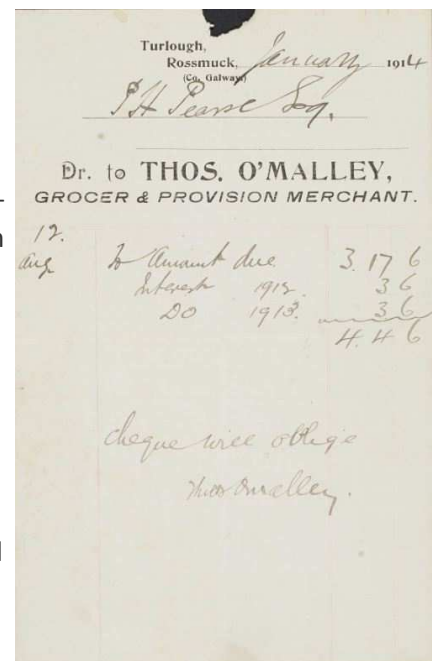 Turlough,
Rossmuck, January 1914
(Co. Galway)
P H Pearse Esq.
Dr. to THOS. O'MALLEY,
GROCER & PROVISION MERCHANT.
12.
Aug To Amount due 3. 17 6
Interest 1912. 3 6
Do 1913. 3 6
4. 4. 6
cheque will oblige
Thos O'Malley.